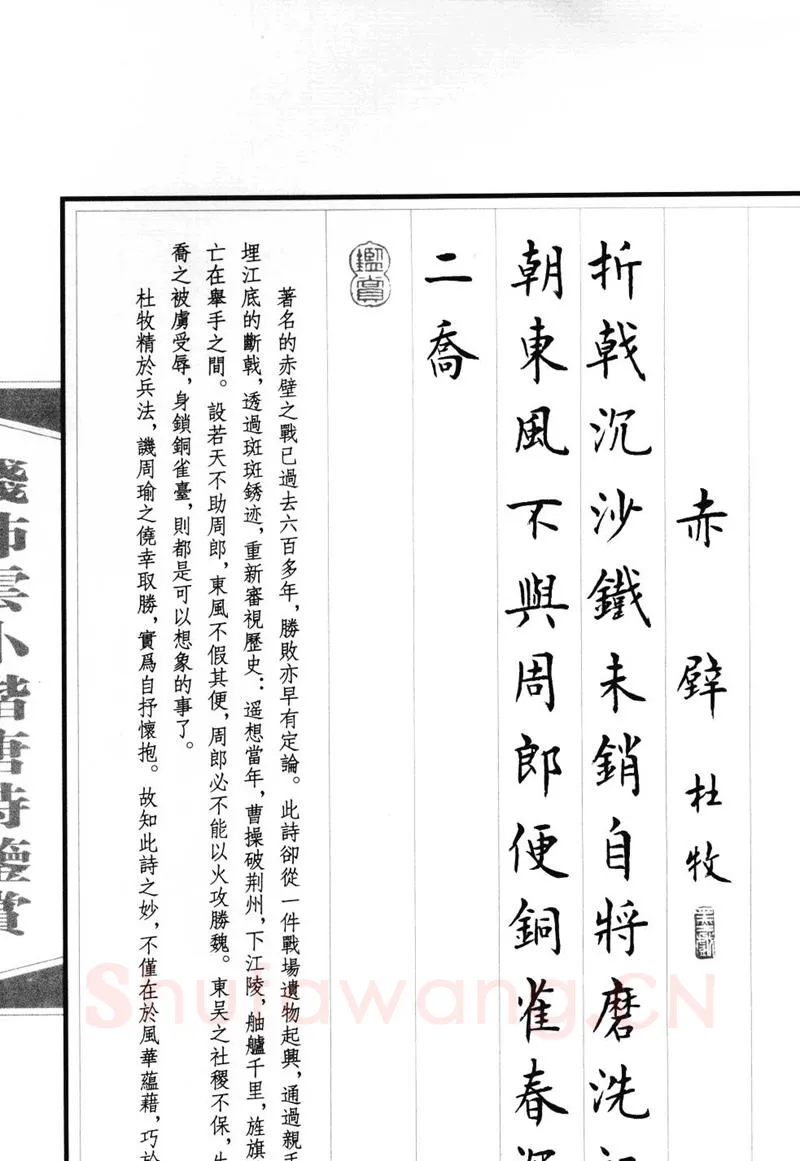 赤壁 杜牧
折戟沉沙鐵未銷自將磨洗
朝東風不與周郎便銅雀春深
二喬
鑑賞
著名的赤壁之戰已過去六百多年，勝敗亦早有定論。此詩卻從一件戰場遺物起興，通過親手
埋江底的斷戟，透過斑斑銹迹，重新審視歷史：遥想當年，曹操破荆州，下江陵，舳艫千里，旌旗
亡在舉手之間。設若天不助周郎，東風不假其便，周郎必不能以火攻勝魏。東吴之社稷不保，
喬之被虜受辱，身鎖銅雀臺，則都是可以想象的事了。
杜牧精於兵法，譏周瑜之僥幸取勝，實爲自抒懷抱。故知此詩之妙，不僅在於風華蘊藉，巧於
錢沛雲小楷唐詩鑒賞
Shufawang.CN